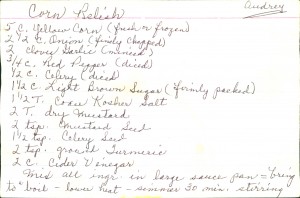 Corn Relish
Audrey
5 C. Yellow Corn (fresh or frozen)
2 1/2 C. Onion (finely chopped)
2 cloves Garlic (minced)
3/4 c. Red Pepper (diced)
1/2 C. Celery (diced)
1 1/2 C Light Brown Sugar (firmly packed)
1 1/2 T. Coarse Kosher Salt
2 T. dry Mustard
2 tsp. Mustard Seed
1 1/2 tsp. Celery Seed
2 tsp. ground Turmeric
2 c. Cider Vinegar
Mix all ingr in large sauce pan = bring
to boil - lower heat - simmer 30 min. stirring